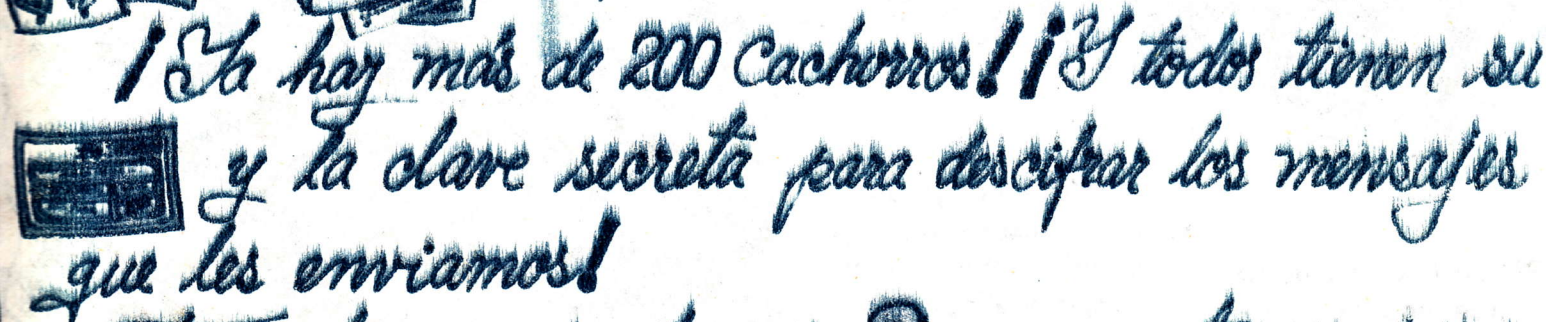 ¡Ya hay más de 200 Cachorros! ¡Y todos tienen su
y la clave secreta para descifrar los mensajes
que les enviamos!